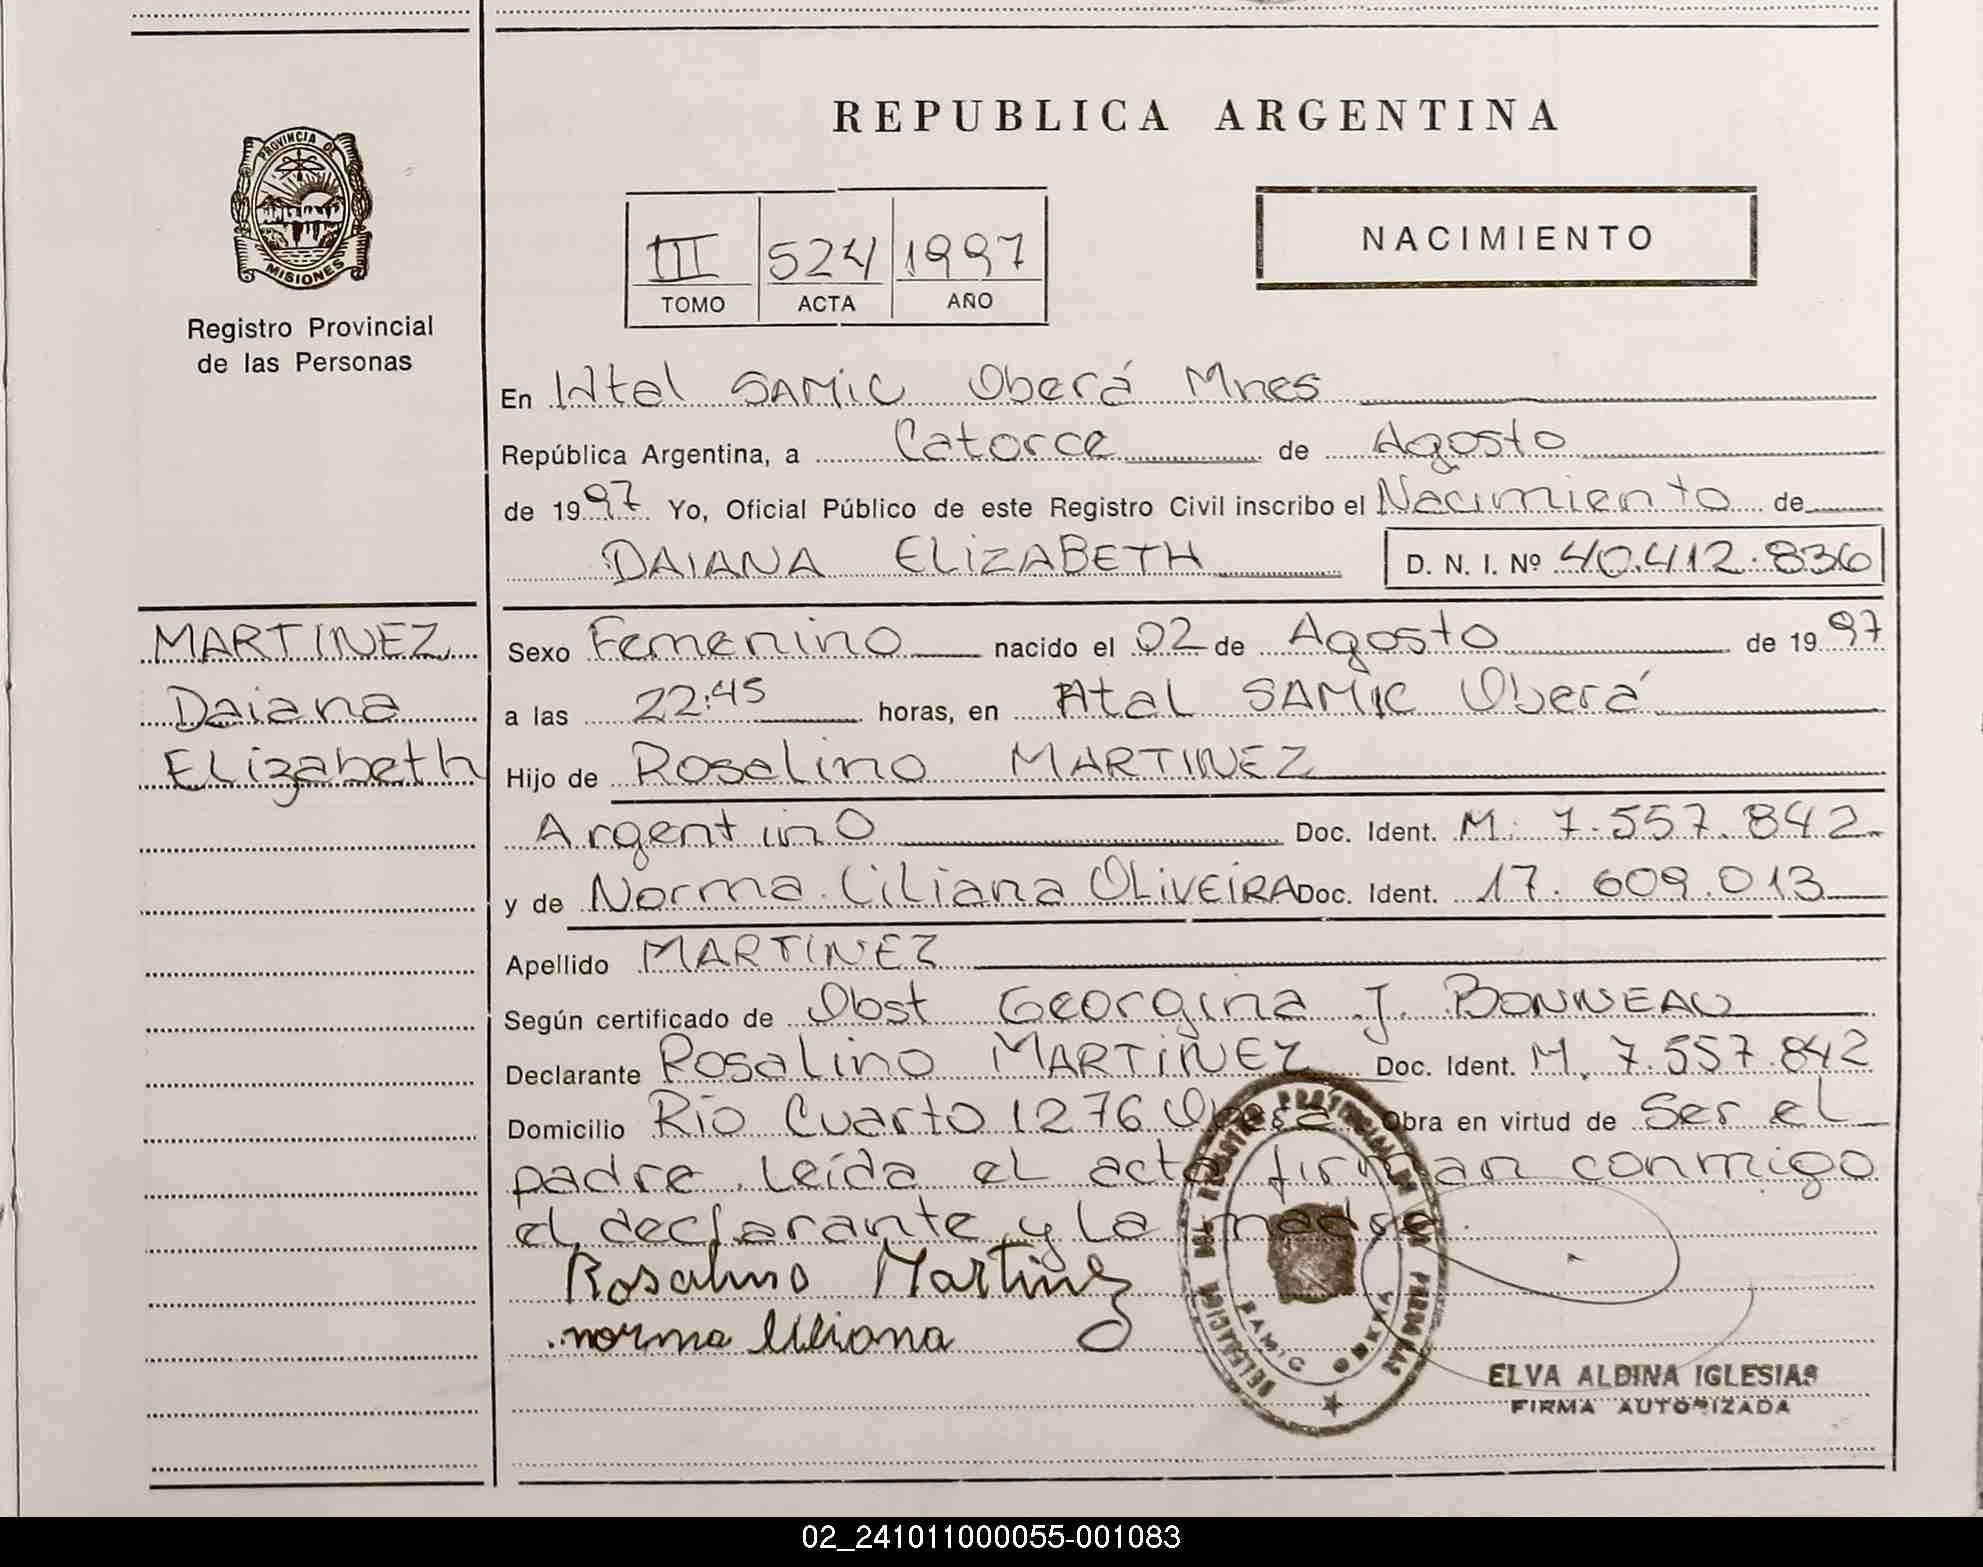 PROVINCIA DE
MISIONES
Registro Provincial
de las Personas
MARTINEZ
Daiana
Elizabeth
REPUBLICA ARGENTINA
III 524 1997
TOMO ACTA AÑO
NACIMIENTO
En Htal SAMIC Oberá Mnes
República Argentina, a Catorce de Agosto
de 1997 Yo, Oficial Público de este Registro Civil inscribo el Nacimiento de
DAIANA ELIZABETH D. N. I. Nº 40.412.836
Sexo Femenino nacido el 02 de Agosto de 1997
a las 22:45 horas, en Htal SAMIC Oberá
Hijo de Rosalino MARTINEZ
Argentino Doc. Ident. M. 7.557.842
y de Norma Liliana OLIVEIRA Doc. Ident. 17.609.013
Apellido MARTINEZ
Según certificado de Obst Georgina J. BONNEAU
Declarante Rosalino MARTINEZ Doc. Ident. M. 7.557.842
Domicilio Río Cuarto 1276 Oberá Obra en virtud de Ser el
padre. Leída el acta firman conmigo
el declarante y la madre.
Rosalino Martinez
norma liliana
DELEGACION DEL REGISTRO PROVINCIAL DE LAS PERSONAS
SAMIC OBERA
ELVA ALDINA IGLESIAS
FIRMA AUTORIZADA
02_241011000055-001083